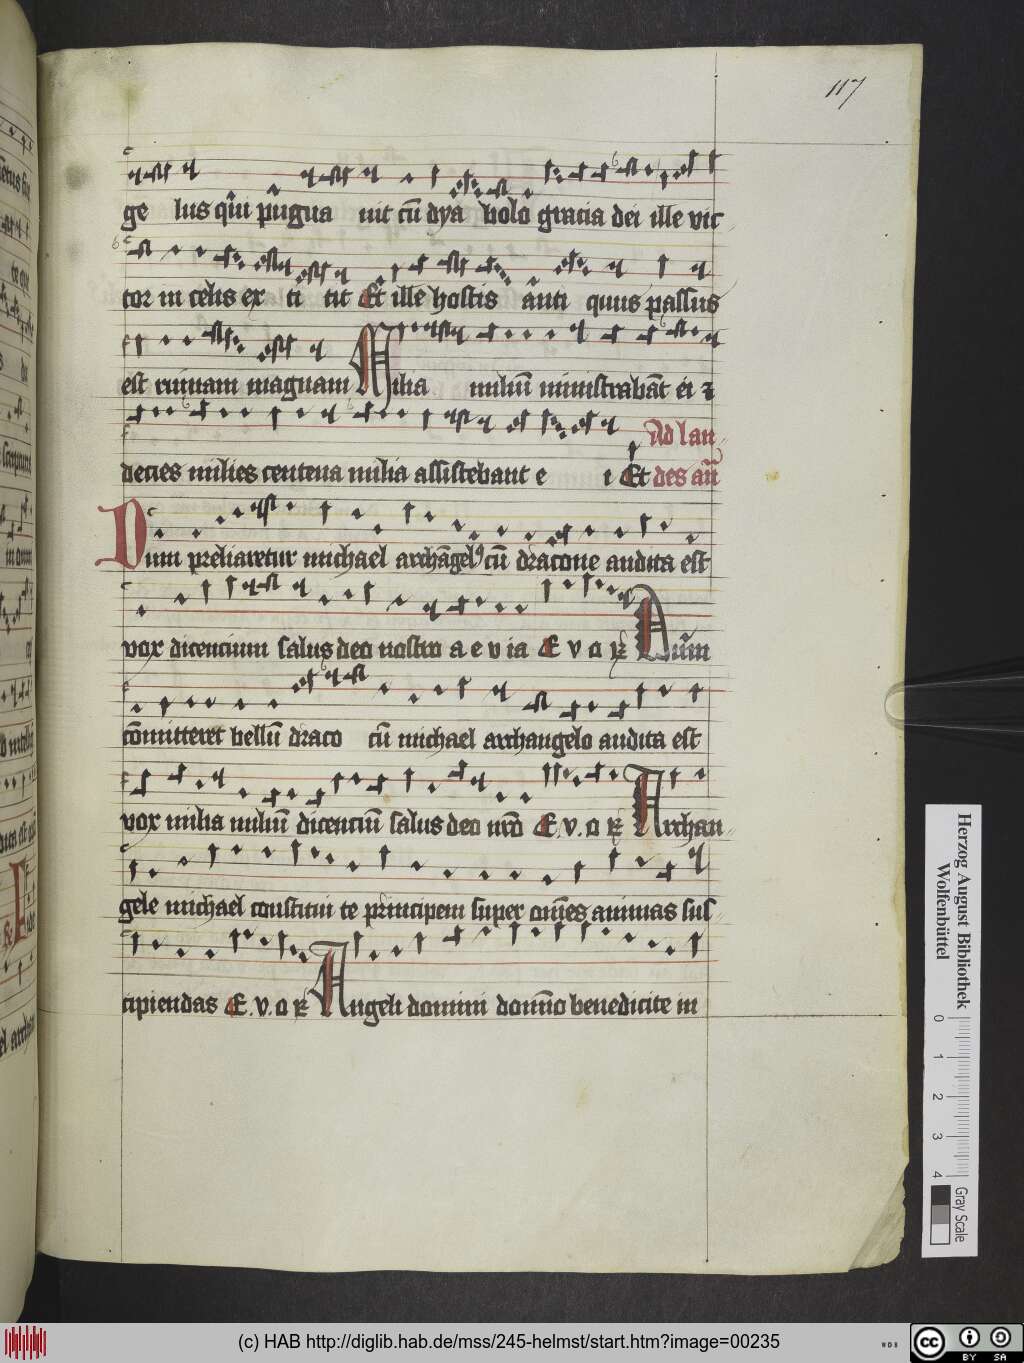 117
ge lus qūi pugna uit cū dya bolo gracia dei ille vic
tor in celis ex ti tit Et ille hostis ānti quus passus
est ruinam magnam Milia miliū ministrabāt ei ⁊
decies milies centena milia assistebant e i Et Ad lau
des añ
Dum preliaretur michael archāgelꝰ cū dracone audita est
vox dicencium salus deo nostro a e v ia E v o
cōmitteret bellū draco cū michael archangelo audita est
vox milia miliū dicenciū salus deo nr̄o E. v. o Archan
gele michael constitui te principem super om̄es animas sus
cipiendas E. v. o Angeli domini domīno benedicite in
Herzog August Bibliothek
Wolfenbüttel
0 1 2 3 4
Gray Scale
(c) HAB http://diglib.hab.de/mss/245-helmst/start.htm?image=00235
WDB
cc BY SA